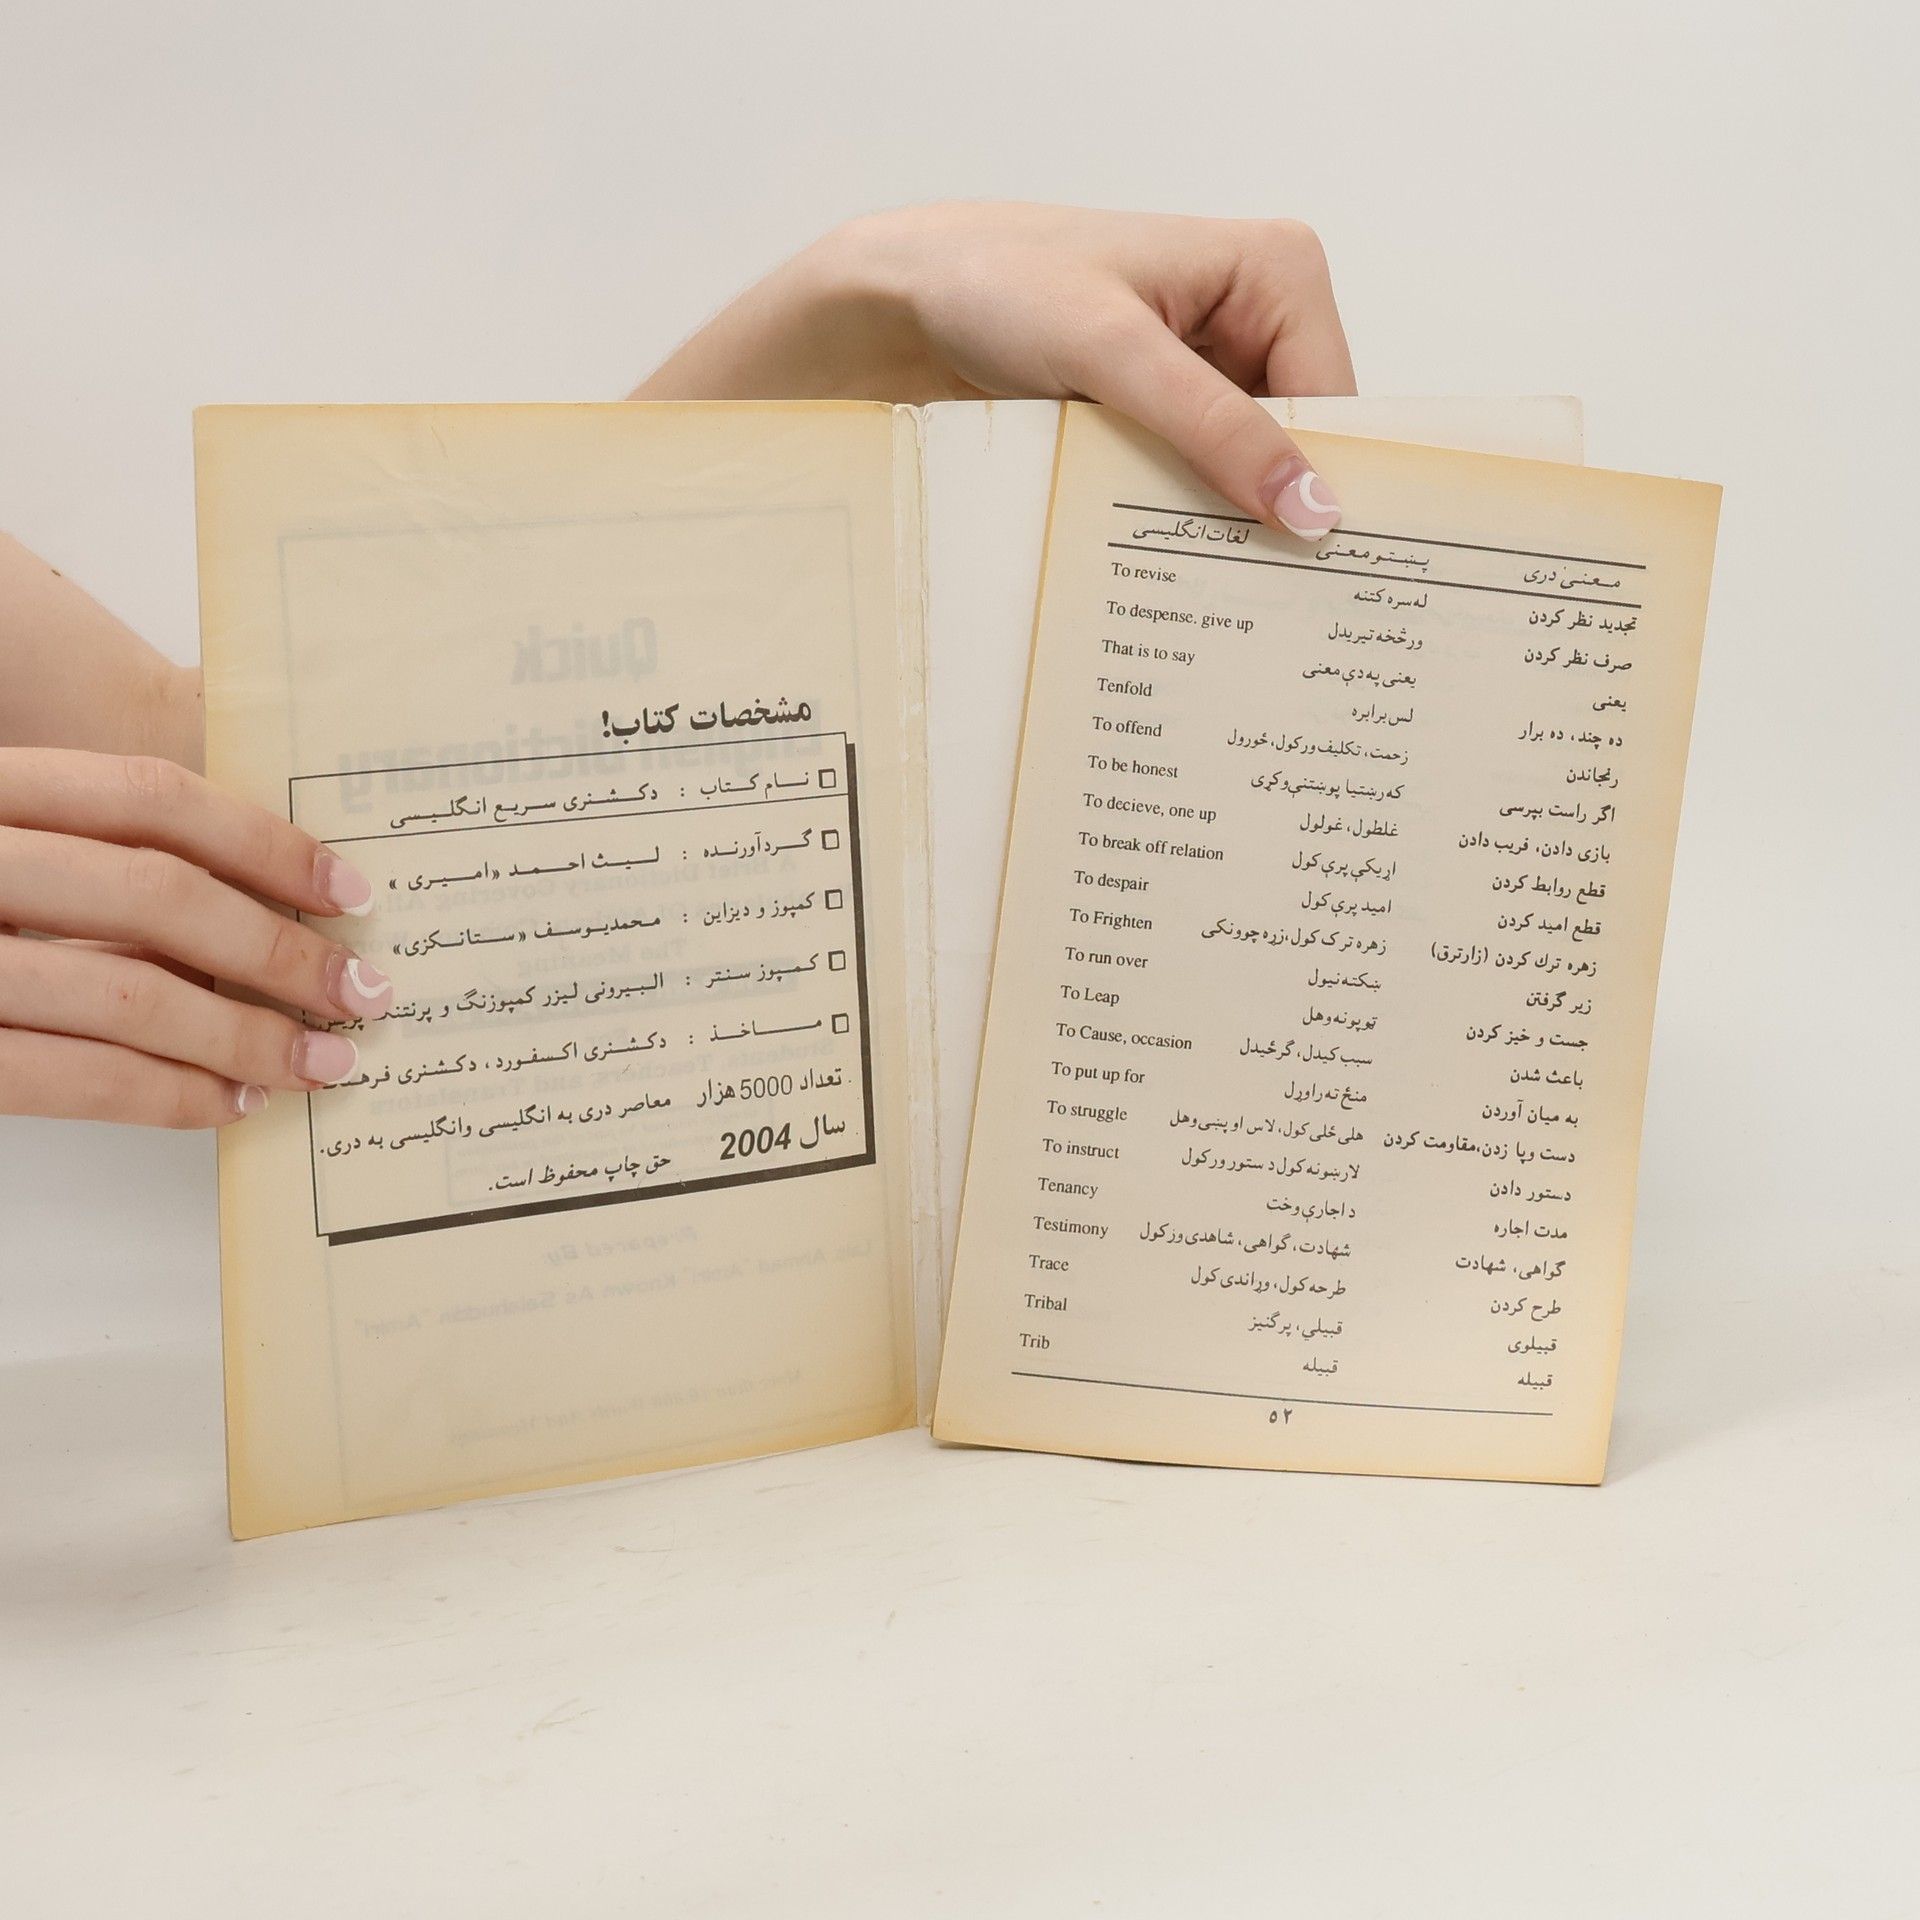 مشخصات کتاب!
نام کتاب : دکشنری سریع انگلیسی
گردآورنده : لیث احمد «امیری»
کمپوز و دیزاین : محمدیوسف «ستانکزی»
کمپوز سنتر : البیرونی لیزر کمپوزنگ و پرنتنگ پریس
ماخذ : دکشنری اکسفورد، دکشنری فرهنگ
تعداد 5000 هزار معاصر دری به انگلیسی وانگلیسی به دری.
سال 2004 حق چاپ محفوظ است.
لغات انگلیسی پښتو معنی معنیٔ دری
To revise له سره کتنه تجدید نظر کردن
To despense. give up ورڅخه تیریدل صرف نظر کردن
That is to say یعنی په دې معنی یعنی
Tenfold لس برابره ده چند، ده برار
To offend زحمت، تکلیف ورکول، ځورول رنجاندن
To be honest که رښتیا پوښتنې وکړی اگر راست بپرسی
To decieve, one up غلطول، غولول بازی دادن، فریب دادن
To break off relation اړیکې پرې کول قطع روابط کردن
To despair امید پرې کول قطع امید کردن
To Frighten زهره ترک کول، زړه چوونکی زهره ترك کردن (زارترق)
To run over ښکته نیول زیر گرفتن
To Leap ټوپونه وهل جست و خیز کردن
To Cause, occasion سبب کیدل، گرځیدل باعث شدن
To put up for منځ ته راوړل به میان آوردن
To struggle هلی ځلی کول، لاس او پښی وهل دست وپا زدن، مقاومت کردن
To instruct لارښونه کول د ستور ورکول دستور دادن
Tenancy د اجارې وخت مدت اجاره
Testimony شهادت، گواهی، شاهدی وزکول گواهی، شهادت
Trace طرحه کول، وړاندی کول طرح کردن
Tribal قبیلي، پرگنیز قبیلوی
Trib قبیله قبیله
٥٢